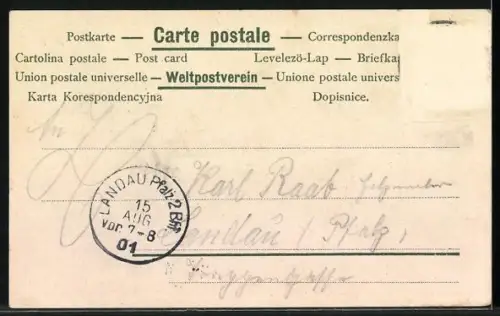 Postkarte — Carte postale — Correspondenzka
Cartolina postale — Post card Levelező-Lap — Briefka
Union postale universelle — Weltpostverein — Unione postale univers
Karta Korespondencyjna Dopisnice.
An
Karl Raab
Landau / Pfalz,
LANDAU Pfalz 2 Bhf
15
AUG
VOR 7-8
01